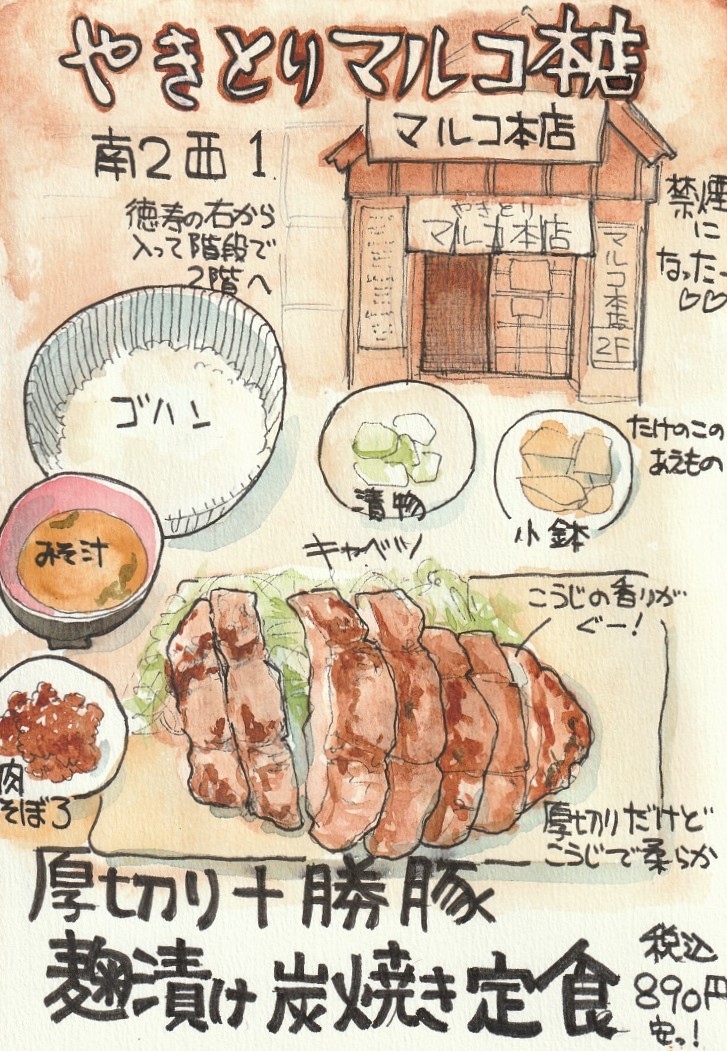 やきとりマルコ本店
マルコ本店
南2西1
徳寿の右から
入って階段で
2階へ
やきとり
マルコ本店
マルコ本店
2F
禁煙
に
なった〜
♡♡
ゴハン
漬物
小鉢
たけのこの
あえもの
みそ汁
キャベツ
こうじの香りが
ぐー!
肉
そぼろ
厚切りだけど
こうじで柔らか
厚切り十勝豚
麹漬け炭焼き定食
税込
890円
安っ!